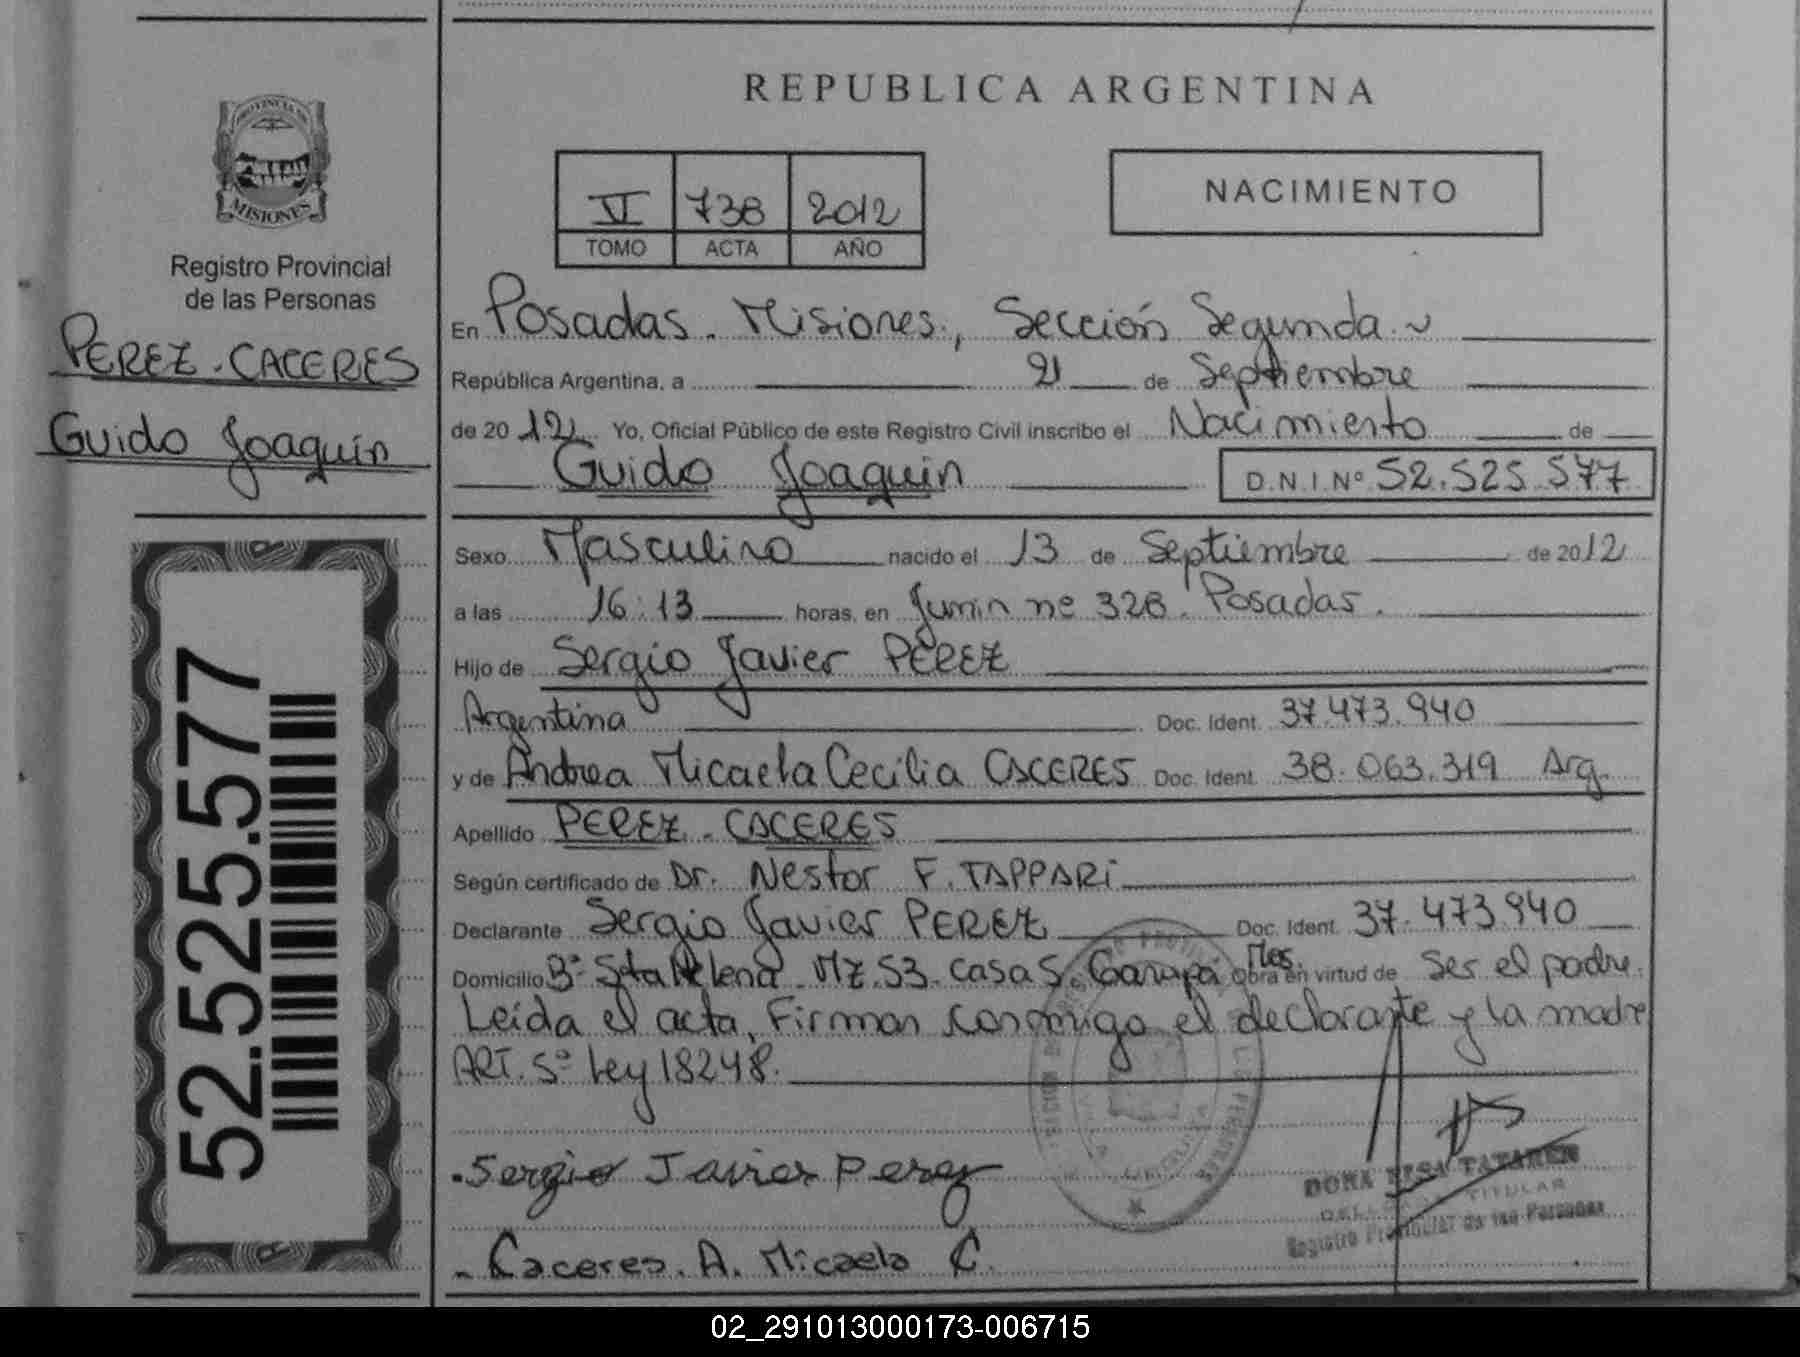 REPUBLICA ARGENTINA
PROVINCIA DE
MISIONES
Registro Provincial
de las Personas
PEREZ - CACERES
Guido Joaquín
52.525.577
VI 738 2012
TOMO ACTA AÑO
NACIMIENTO
En Posadas - Misiones, Sección Segunda
República Argentina, a 21 de Septiembre
de 2012 Yo, Oficial Público de este Registro Civil inscribo el Nacimiento de
Guido Joaquín D.N.I.Nº 52.525.577
Sexo Masculino nacido el 13 de Septiembre de 2012
a las 16:13 horas, en Junin nº 328. Posadas.
Hijo de Sergio Javier PEREZ
Argentina Doc. Ident. 37.473.940
y de Andrea Micaela Cecilia CACERES Doc. Ident. 38.063.319 Arg.
Apellido PEREZ - CACERES
Según certificado de Dr. Nestor F. TAPPARi
Declarante Sergio Javier PEREZ Doc. Ident. 37.473.940
Domicilio Bº Sta Helena - Mz. 53. casa 5. Garupá Mes. obra en virtud de Ser el padre.
Leída el acta, Firman conmigo el declarante y la madre
ART. 5º Ley 18248.
Sergio Javier Perez
Caceres. A. Micaela C.
TITULAR
Registro Provincial de las Personas
02_291013000173-006715